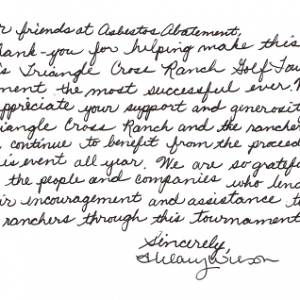 r friends at Asbestos Abatement,
hank-you for helping make this
s Triangle Cross Ranch Golf Tou
ment the most successful ever.
ppreciate your support and generosit
iangle Cross Ranch and the rancher
continue to benefit from the proceed
is event all year. We are so gratefu
the people and companies who lend
ir encouragement and assistance t
ranchers through this tournament
Sincerely,